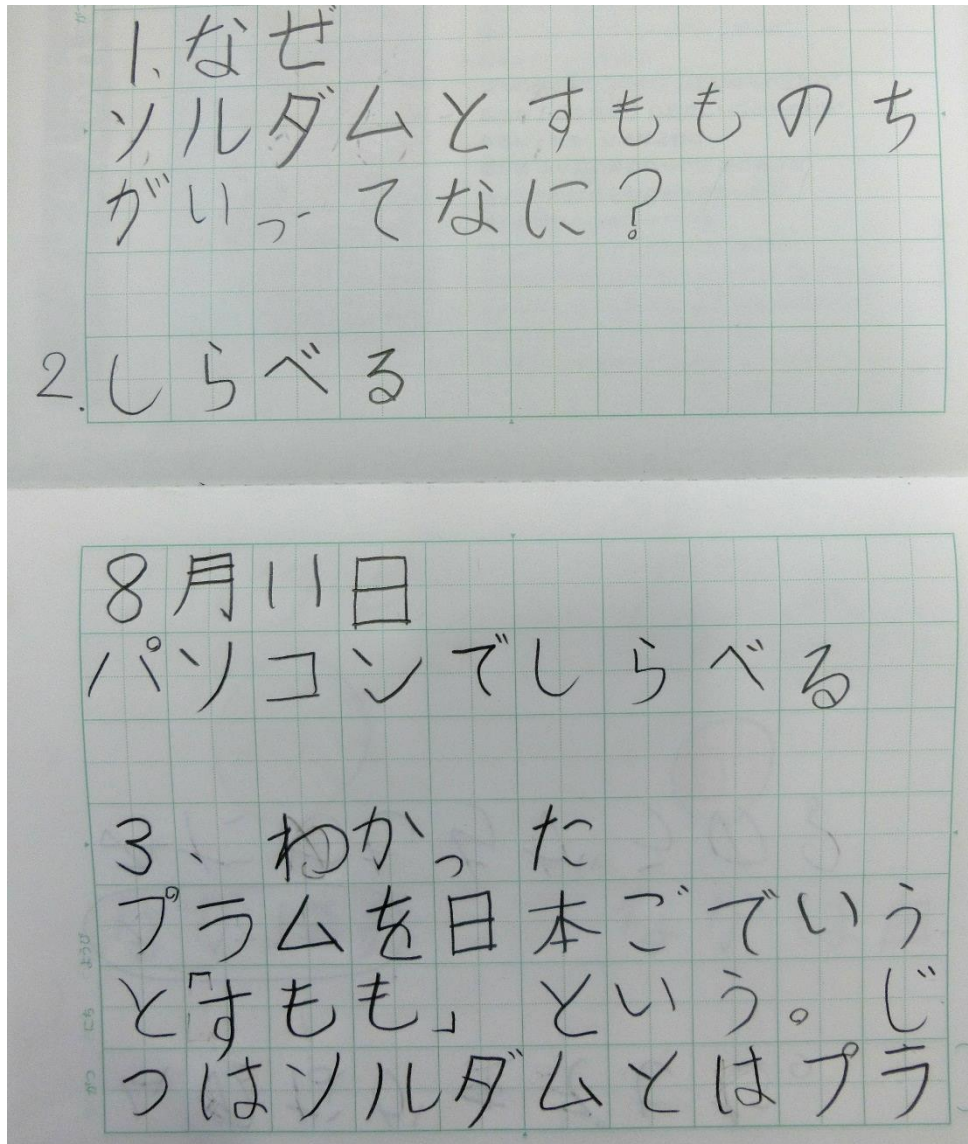 1、なぜ
ソルダムとすもものち
がいってなに?
2.しらべる
8月11日
パソコンでしらべる
3、わかった
プラムを日本ごでいう
と「すもも」という。じ
つはソルダムとはプラ